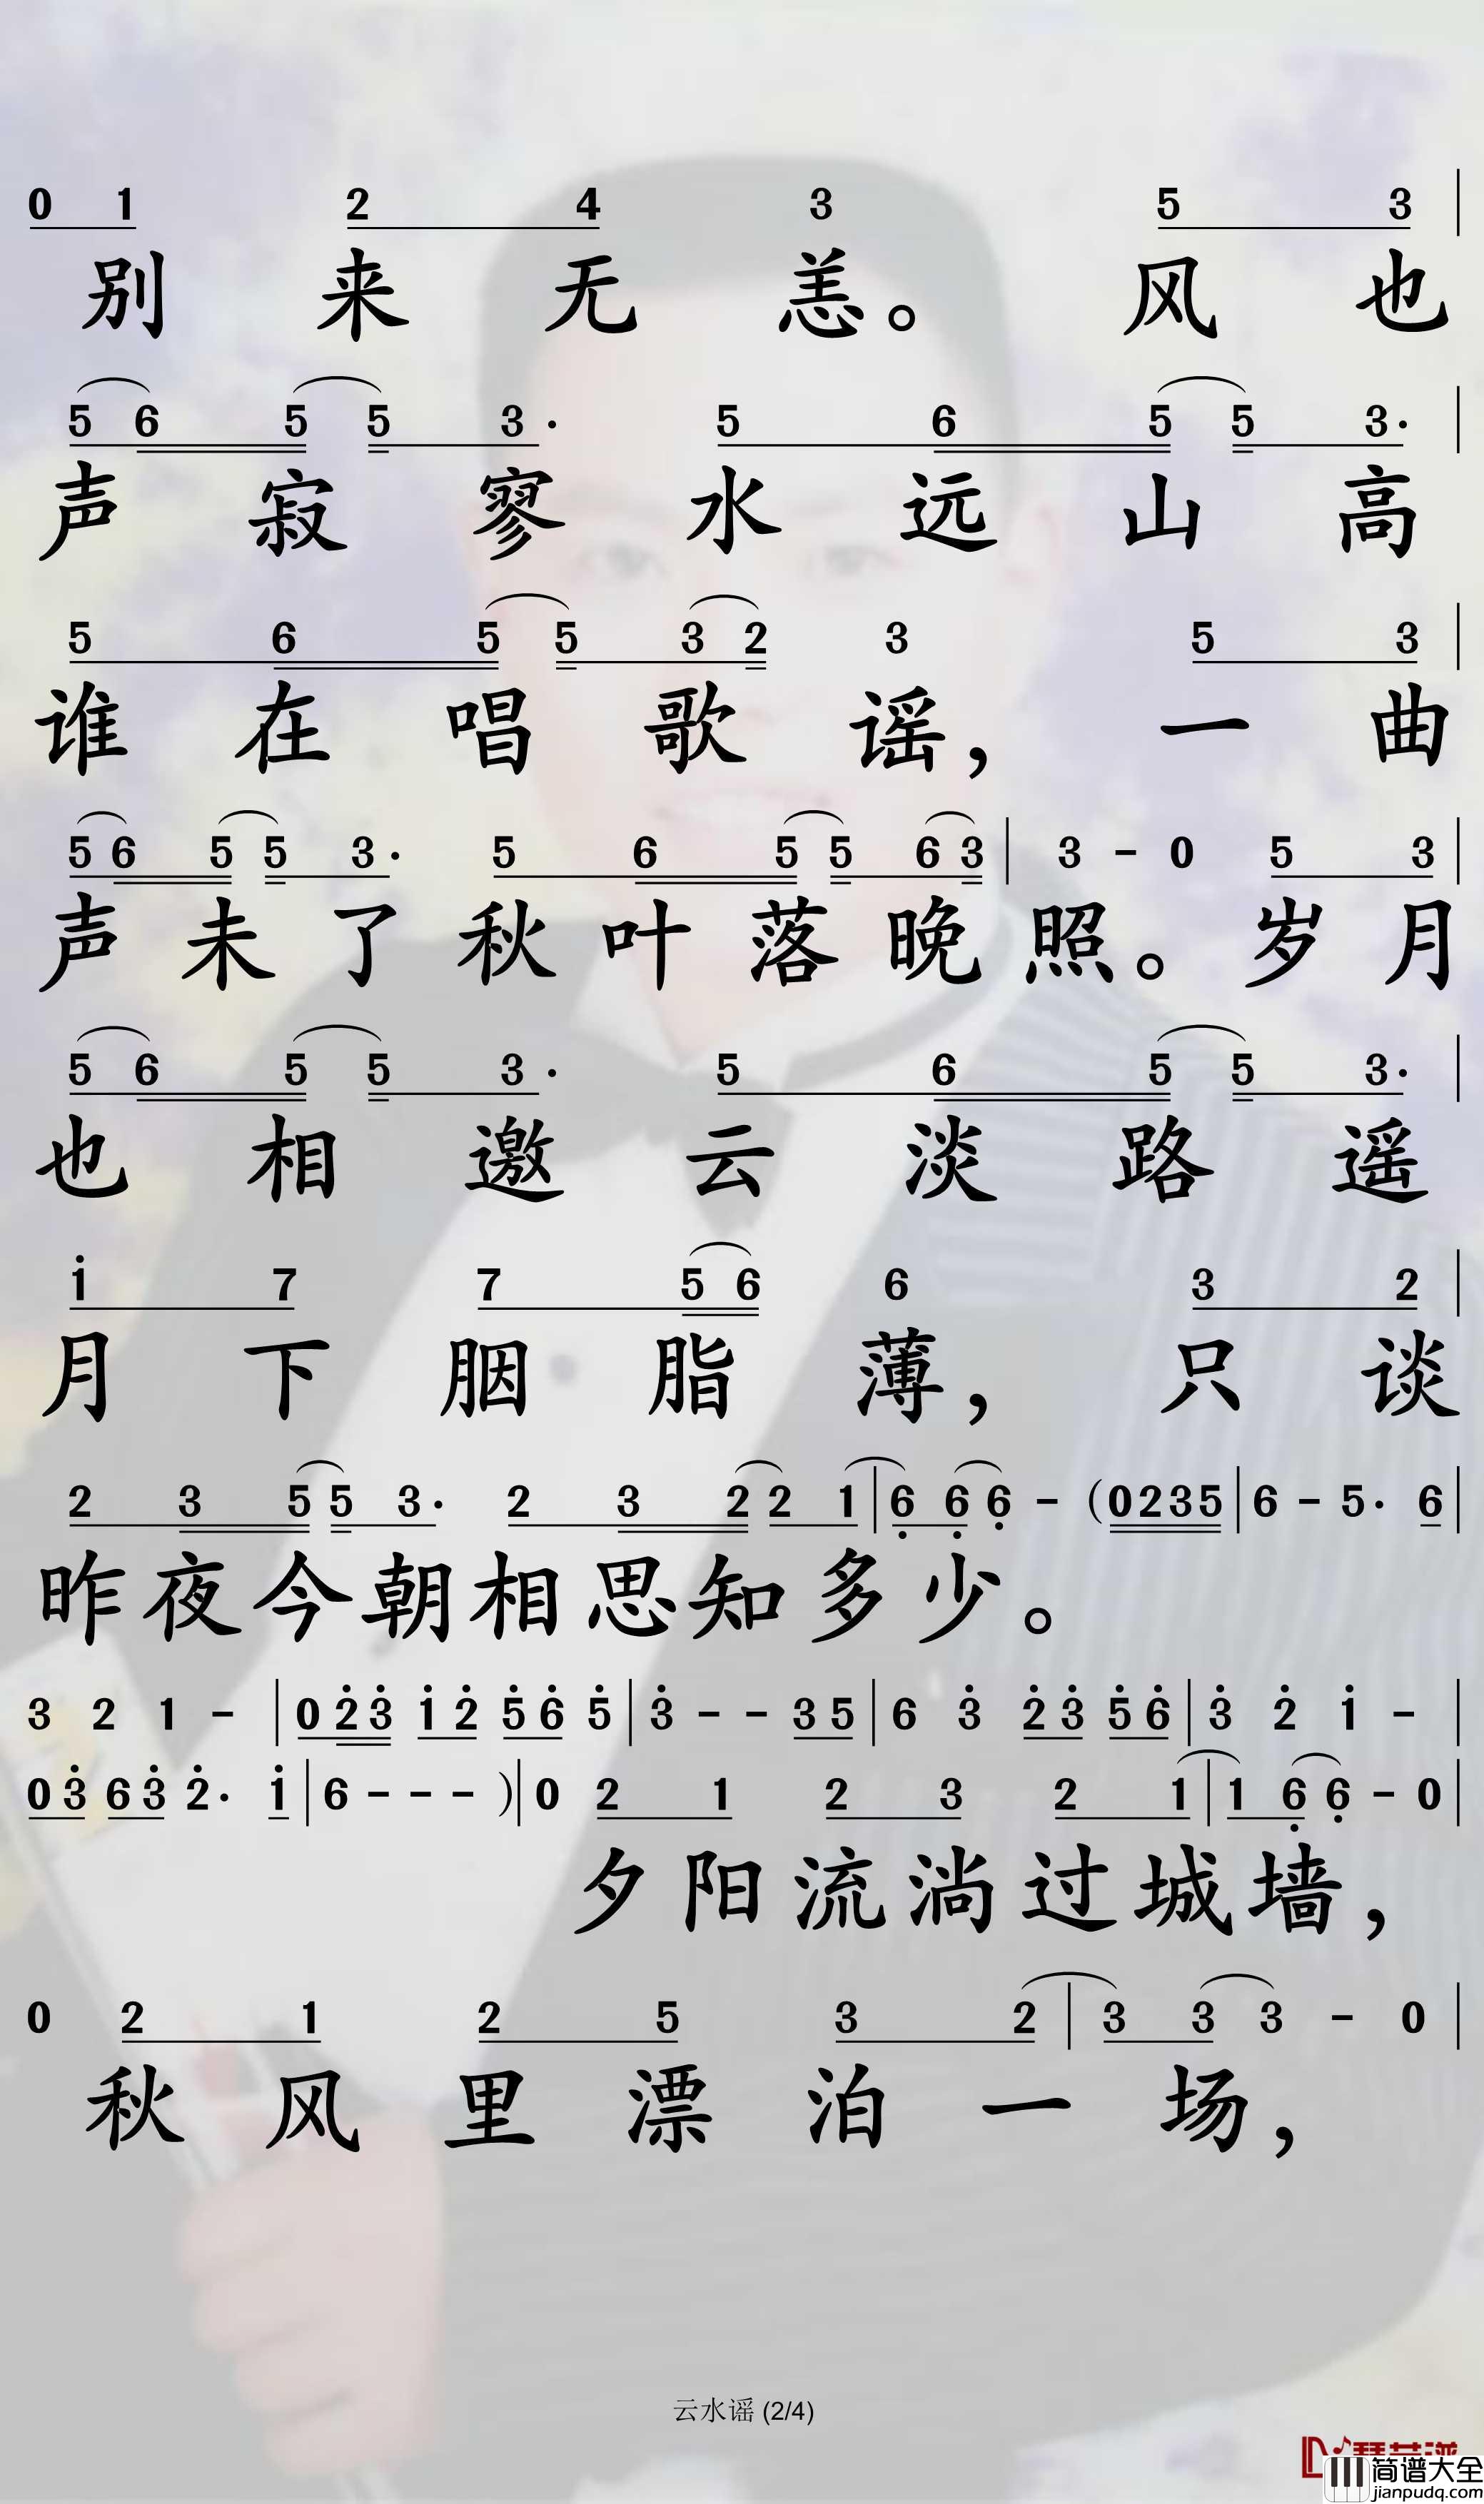 0 1 2 4 3 5 3 |
别 来 无 恙。 风 也
5 6 5 5 3· 5 6 5 5 3· |
声 寂 寥 水 远 山 高
5 6 5 5 3 2 3 5 3 |
谁 在 唱 歌 谣， 一 曲
5 6 5 5 3· 5 6 5 5 6 3 | 3 - 0 5 3 |
声 未 了 秋 叶 落 晚 照。 岁 月
5 6 5 5 3· 5 6 5 5 3· |
也 相 邀 云 淡 路 遥
i 7 7 5 6 6 3 2 |
月 下 胭 脂 薄， 只 谈
2 3 5 5 3· 2 3 2 2 1 | 6̣ 6̣ 6̣ - (0 2 3 5 | 6 - 5· 6 |
昨 夜 今 朝 相 思 知 多 少。
3 2 1 - | 0 2̇ 3̇ 1̇ 2̇ 5̇ 6̇ 5̇ | 3̇ - - 3 5 | 6 3̇ 2̇ 3̇ 5̇ 6̇ | 3̇ 2̇ 1̇ - |
0 3̇ 6 3̇ 2̇· 1̇ | 6 - - - ) | 0 2 1 2 3 2 1 | 1 6̣ 6̣ - 0 |
夕 阳 流 淌 过 城 墙，
0 2 1 2 5 3 2 | 3 3 3 - 0 |
秋 风 里 漂 泊 一 场，
云水谣 (2/4)
简谱大全
jianpudq.com